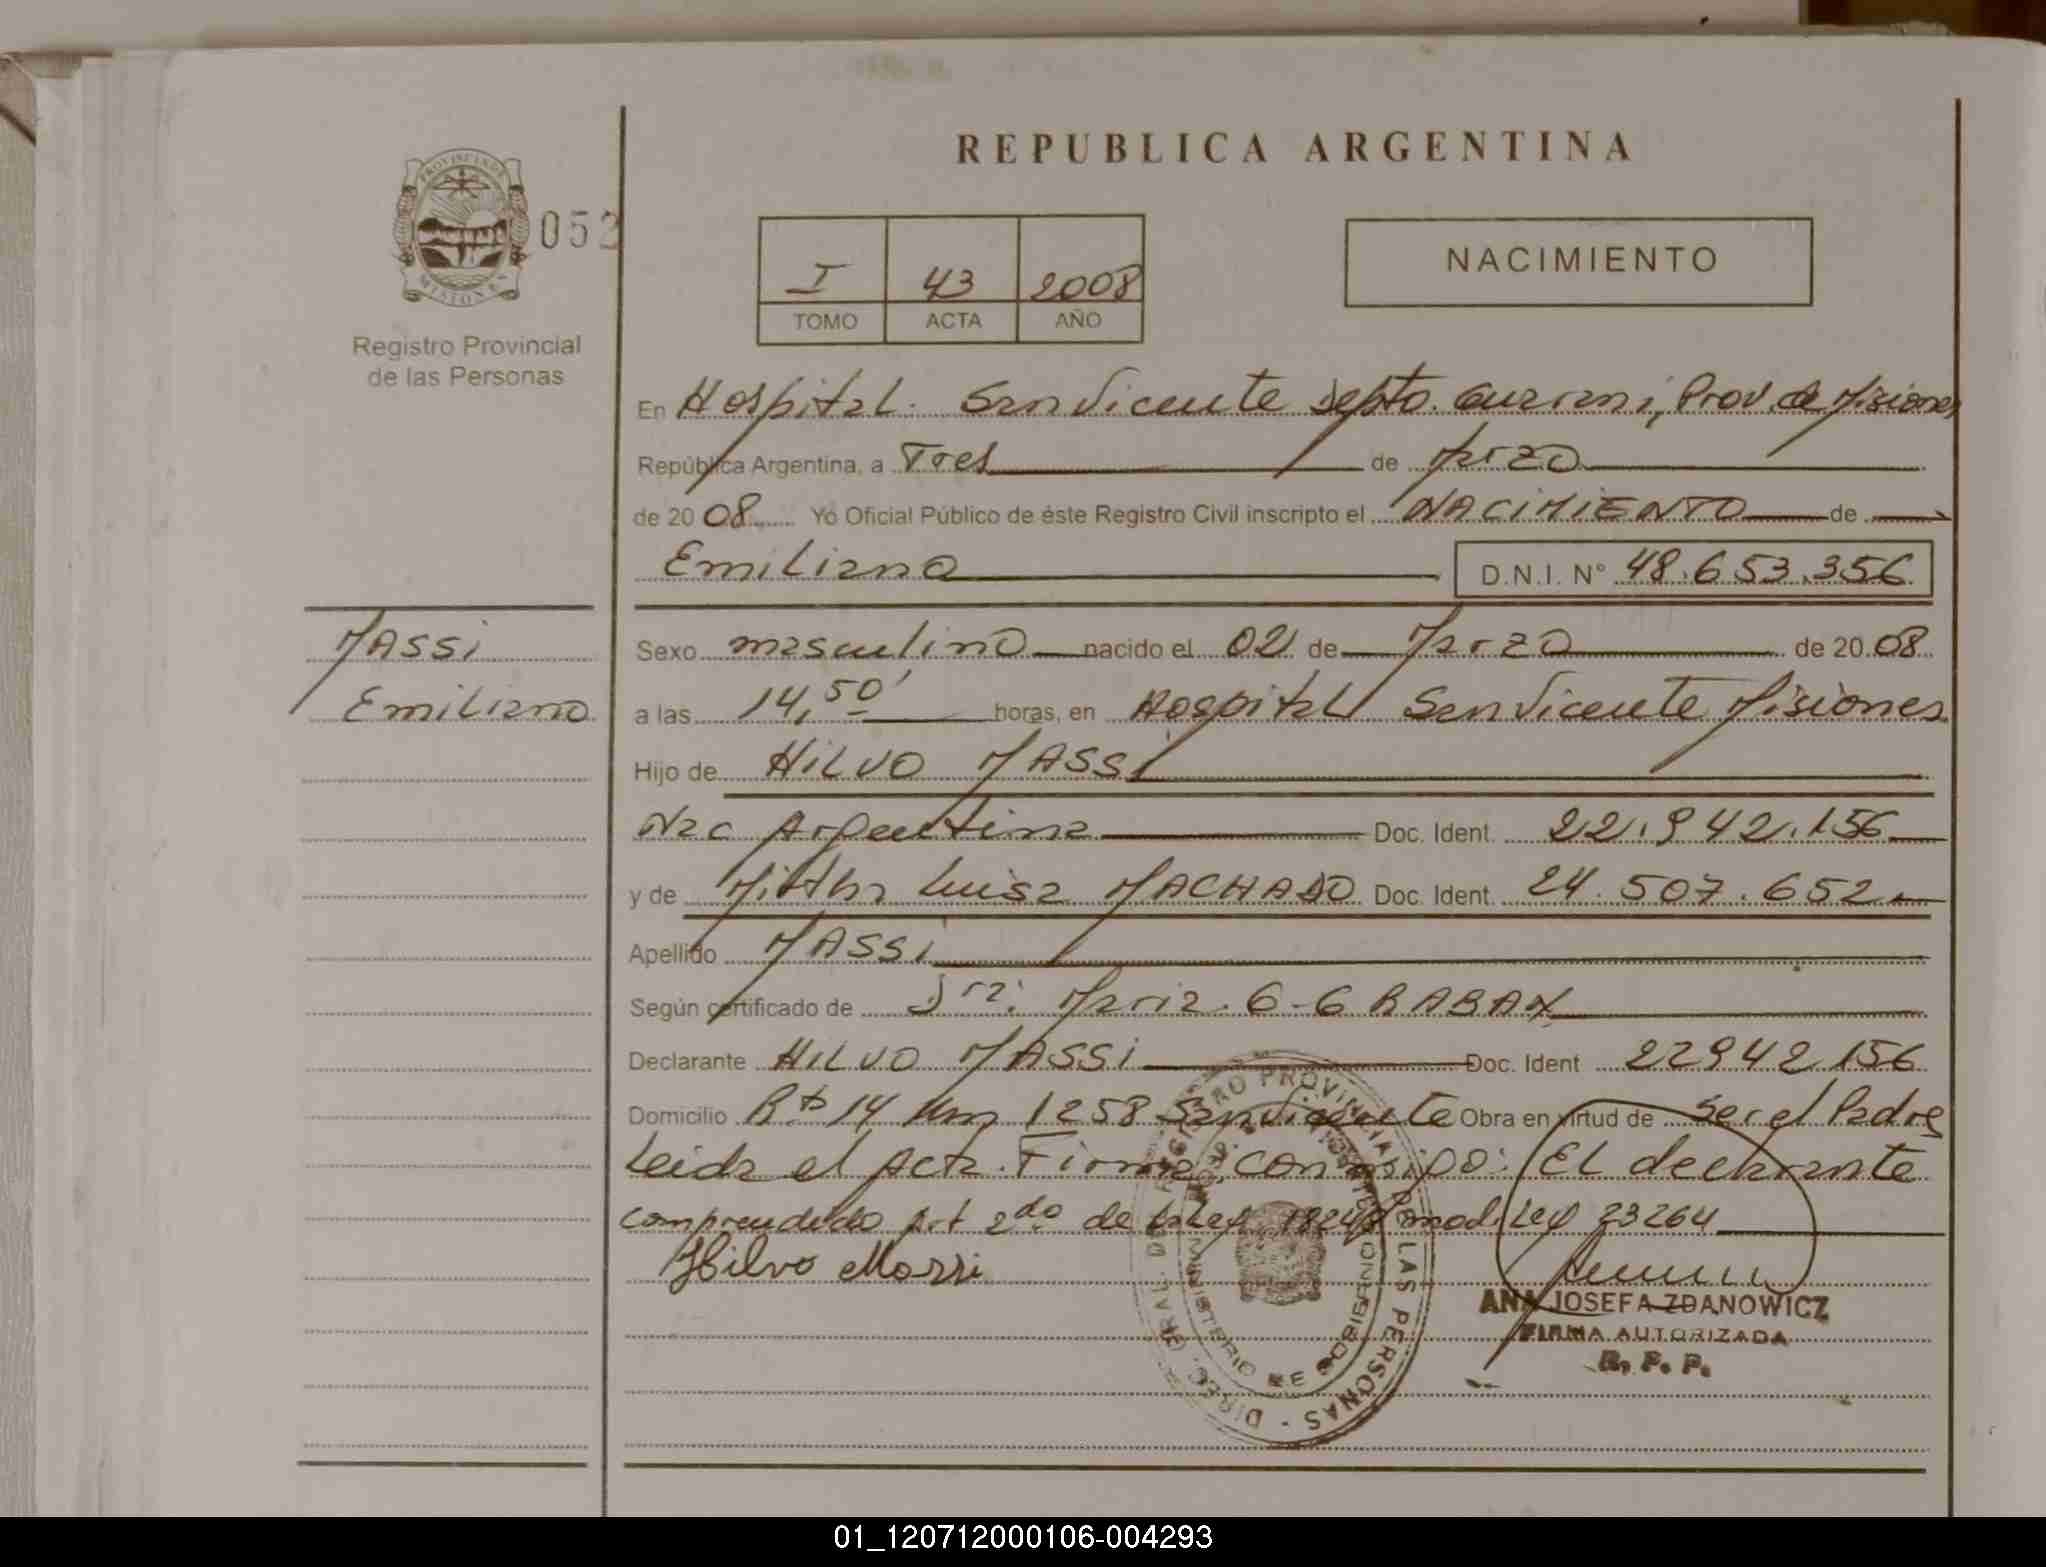 REPUBLICA ARGENTINA
PROVINCIA DE MISIONES
052
Registro Provincial
de las Personas
I 43 2008
TOMO ACTA AÑO
NACIMIENTO
En Hospital. San Vicente Depto. Guarani, Prov. de Misiones
República Argentina, a Tres de Marzo
de 20 08 Yo Oficial Público de éste Registro Civil inscripto el NACIMIENTO de
Emiliano D.N.I. Nº 48.653.356
MASSi
Emiliano
Sexo masculino nacido el 02 de Marzo de 20 08
a las 14,50' horas, en Hospital San Vicente Misiones
Hijo de HILVO MASSi
Nac Argentina Doc. Ident. 22.942.156
y de Mirtha Luisa MACHADO Doc. Ident. 24.507.652
Apellido MASSi
Según certificado de Dra: Maria. G-G
Declarante HILVO MASSi Doc. Ident 22942156
Domicilio Rta 14 Km 1258 San Vicente Obra en virtud de Ser el Padre
Leida el Acta. Firma, conmigo: EL declarante
comprendido Art 2do de la Ley 18248 mod. Ley 23264
Hilvo Massi
DIREC. GRAL. DE REGISTRO PROVINCIAL DE LAS PERSONAS
MINISTERIO DE GOBIERNO
ANA JOSEFA ZDANOWICZ
FIRMA AUTORIZADA
R. P. P.
01_120712000106-004293